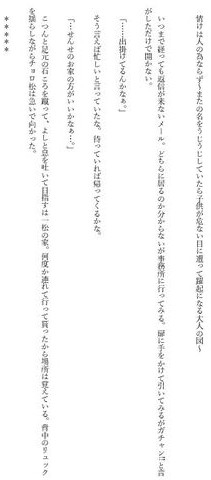 情けは人の為ならず～またの名をうじうじしていたら子供が危ない目に遭って躍起になる大人の図～
いつまで経っても返信が来ないメール。どちらに居るのか分からないが事務所に行ってみる。扉に手をかけて引いてみるがガチャン!!と言
がしただけで開かない。
「……出掛けてるんかなぁ。」
そう言えば忙しいと言っていたな。待っていれば帰ってくるかな。
「…せんせのお家の方がいいかなぁ…。」
こつんと足元の石ころを蹴って、よしと息を吐いて目指すは一松の家。何度か連れて行って貰ったから場所は覚えている。背中のリュック
を揺らしながらチョロ松は急いで向かった。
＊＊＊＊＊